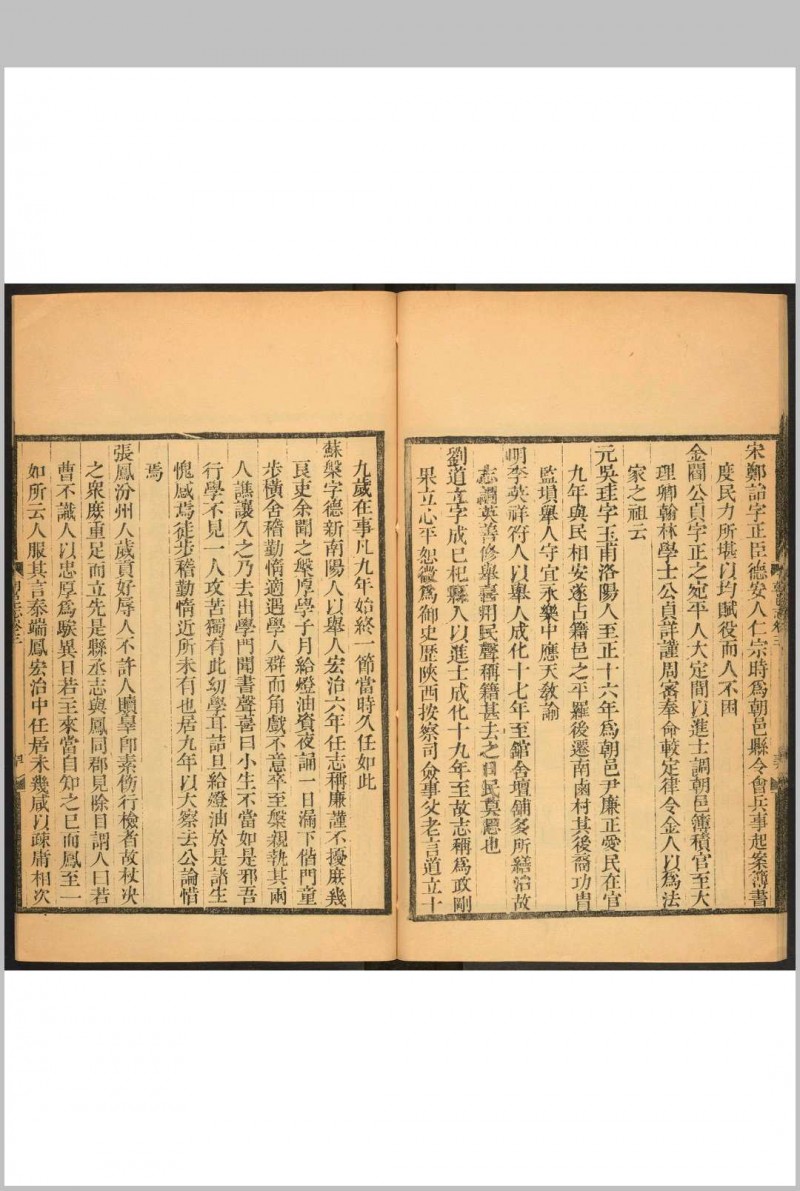 宋鄭詒字正臣德安人仁宗時爲朝邑縣令會兵事起案簿書
度民力所堪以均賦役而人不困
金閻公貞字正之宛平人大定間以進士調朝邑簿積官至大
理卿翰林學士公貞詳謹周審奉命較定律令金人以爲法
家之祖云
元吳珪字玉甫洛陽人至正十六年爲朝邑尹廉正愛民在官
九年與民相安遂占籍邑之平羅後遷南鹵村其後裔功冑
監填舉人守宜永樂中應天敎諭
明李英祥符人以舉人成化十七年至舘舍壇鋪多所繕治故
志謂英善修舉喜刑民聲稱籍甚去之日民莫思也
劉道立字成已杞縣人以進士成化十九年至故志稱爲政剛
果立心平恕徵爲御史歷陜西按察司僉事父老言道立十
九歲在事凡九年始終一節當時久任如此
蘇槃字德新南陽人以舉人宏治六年任志稱廉謹不擾庶幾
良吏余聞之槃厚學子月給燈油資夜誦一日漏下偕門童
步橫舍稽勤惰適遇學人群而角戲不意卒至槃親執其兩
人譙讓久之乃去出學門聞書聲喜曰小生不當如是邪吾
行學不見一人攻苦獨有此幼學耳詰旦給燈油於是諸生
愧感焉徒步稽勤惰近所未有也居九年以大察去公論惜
焉
張鳳汾州人歲貢好辱人不許人贖辠卽素傷行檢者故杖决
之衆庶重足而立先是縣丞志與鳳同郡見除目謂人曰若
曹不識人以忠厚爲騃異日若主來當自知之已而鳳至一
如所云人服其言秦端鳳宏治中任居未幾咸以疎庸相次